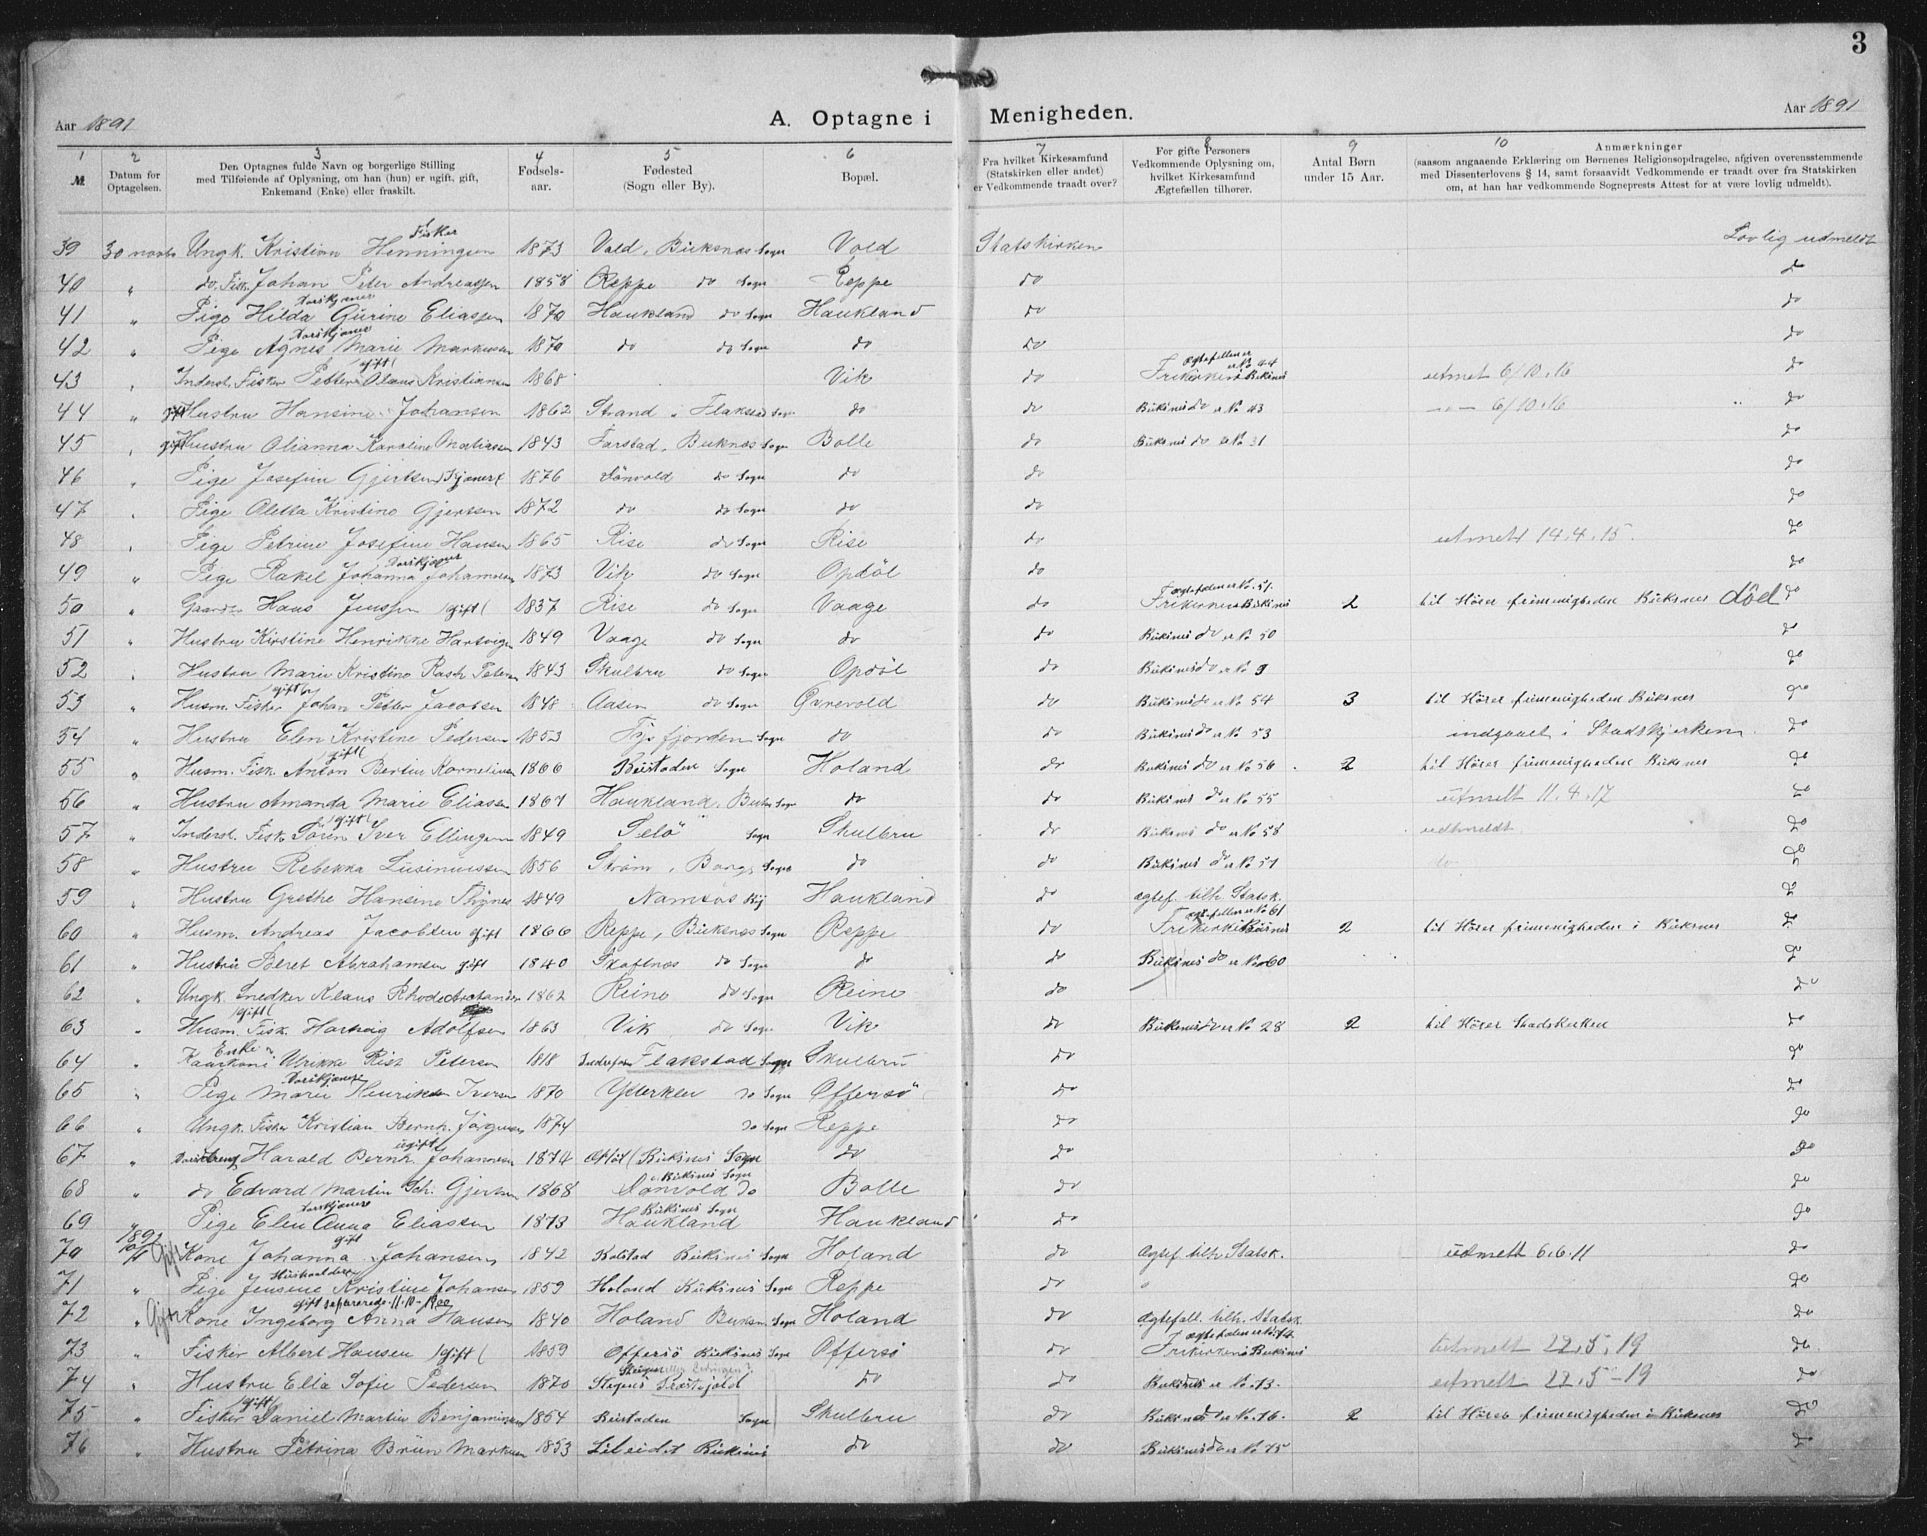 3
Aar 1891 A. Optagne i Menigheden. Aar 1891
1 2 3 4 5 6 7 8 9 10
№ Datum for Optagelsen. Den Optagnes fulde Navn og borgerlige Stilling med Tilføiende af Oplysning, om han (hun) er ugift, gift, Enkemand (Enke) eller fraskilt. Fødsels-aar. Fødested (Sogn eller By). Bopæl. Fra hvilket Kirkesamfund (Statskirken eller andet) er Vedkommende traadt over? For gifte Personers Vedkommende Oplysning om, hvilket Kirkesamfund Ægtefællen tilhører. Antal Børn under 15 Aar. Anmærkninger (saasom angaaende Erklæring om Børnenes Religionsopdragelse, afgiven overensstemmende med Dissenterlovens § 14, samt forsaavidt Vedkommende er traadt over fra Statskirken om, at han har vedkommende Sogneprests Attest for at være lovlig udmeldt).
39 30 novbr Ungk. Kristian Henningsen Fisker 1873 Vold, Buksnæs Sogn Vold Statskirken Lovlig udmeldt
40 " do. Fisk. Johan Peter Andreassen 1858 Reppe do Sogn Reppe do do
41 " Pige Hilda Gurine Eliassen 1870 Haukland do Sogn Haukland do do
42 " Pige Agnes Marie Markussen 1870 do do Sogn do do do
43 " Inderst. Fisker Petter Olaus Kristiansen gift 1868 Vik do Ægtefellen er No 44 Frikirken i Buksnes utmet 6/10.16 do
44 " gift Hustru Hansine Johansen 1862 Strand i Flakstad Sogn do do Buksnes do er No 43 6/10.16 do
45 " gift Hustru Olianna Karoline Matiassen 1843 Farstad, Buknæs Sogn Bolle do Buksnes do er No 31 do
46 " Pige Josefine Gjertsen Tjener 1876 Sönvold do Sogn do do do
47 " Pige Oletta Kristine Gjertsen 1872 do do Sogn do do do
48 " Pige Petrine Josefine Hansen 1865 Rise do Sogn Rise do utmelt 14.4.15. do
49 " Pige Rakel Johanna Johannesen 1873 Vik do Sogn Opdöl do do
50 " Gaardbr Hans Jenssen (gift) 1837 Rise do Sogn Vaage do Ægtefælen er No. 51. Frikirken i Buksnes 2 til Hörer frimenigheden Buksnes död do
51 " Hustru Kirstine Henrikke Hartvigsen 1849 Vaage do Sogn do do Buksnes do er No 50 do
52 " Hustru Marie Kristine Rash Petersen 1843 Skulbru do Sogn Opdöl do Buksnes do er No 9 do
53 " Husm. Fisker Johan Petter Jacobsen gift 1848 Aasen do Sogn Övrevold do Buksnes do er No 54 3 til Hörer frimenigheden Buksnes do
54 " Hustru Elen Kristine Pedersen 1853 Tysfjorden Sogn do do Buksnes do er No 53 indgaaet i Stadskjerken. do
55 " Husm. Fisk. Anton Bertin Kornelius gift 1866 Beistaden Sogn Holand do Buksnes do er No 56 2 til Hörer frimenigheden Buksnes do
56 " Hustru Amanda Marie Eliasen 1867 Haukland, Buksn Sogn do do Buksnes do er No 55 utmelt 11.4.17 do
57 " Inderst. Fisk. Sören Iver Ellingsen gift 1849 Selö Sogn Skulbru do Buksnes do er No 58 udtmeldt. do
58 " Hustru Rebekka Zusimussen 1856 Ström, Borge Sogn do do Buksnes do er No 57 do do
59 " Hustru Grethe Hansine Thynes 1849 Namsos By Haukland do ægtef. tilh. Statsk. do
60 " Husm. Andreas Jacobsen gift 1866 Reppe, Buksnæs Sogn Reppe do ægtefellen er No 61 Frikirken Buksnes 2 til Hörer frimenigheden i Buksnes do
61 " Hustru Beret Abrahamsen gift 1840 Skaftnes do Sogn do do Buksnes do er No 60 do
62 " Ungk. Snedker Klaus Rhode 1862 Reine do Sogn Reine do do
63 " Husm. Fisk. Hartvig Adolfsen gift 1863 Vik do Sogn Vik do Buksnes do er No 28 2 til Hörer Stadskerken do
64 " Enke Kaarkone Ulrikke Rist Petersen 1818 Flakstad Sogn Skulbru do do
65 " Pige Marie Henriksen Iversen 1870 Ytterklev do Sogn Offersö do do
66 " Ungk. Fisker Kristian Bernh. Jörgensen 1874 do Sogn Reppe do do
67 " Harald Bernh. Johannesen ugift 1874 Opdöl (Buksnes Sogn do do do
68 " do Edvard Martin Sch. Gjertsen 1868 Sönvold do Buksnes Sogn Bolle do do
69 " Pige Elen Anna Eliassen 1873 Haukland Buksnes Sogn Haukland do do
70 1892 Gift Kone Johanna Johansen gift 1842 Kolstad Buksnes Sogn Holand do Ægtef. tilh. Statsk. udmelt 6.6.11 do
71 " Pige Jensine Kristine Johansen Husholderske 1859 Holand Buksnes Sogn Reppe do " do
72 " Gift Kone Ingeborg Anna Hansen gift separerede. 11.10-1900 1840 Holand Buksn Sogn Holand do Ægtefall. tilh. Statsk. do
73 " Fisker Albert Hansen (gift) 1859 Offersö Buksnes Sogn Offersö do Ægtefælen er No 74 Frikirken i Buksnes utmelt 22.5.19 do
74 " Hustru Ella Sofie Pedersen 1870 Stegens do do Buksnes er No. 73. utmelt 22.5-19 do
75 " Fisker Daniel Martin Benjaminsen gift 1854 Beistaden Sogn Skulbru do Buksnes do er No. 76. 2 til Hörer frimenigheden i Buksnes do
76 " Hustru Petrina Brün Markusen 1853 Lileidet Buksnes do do Buksnes do er No 75 do